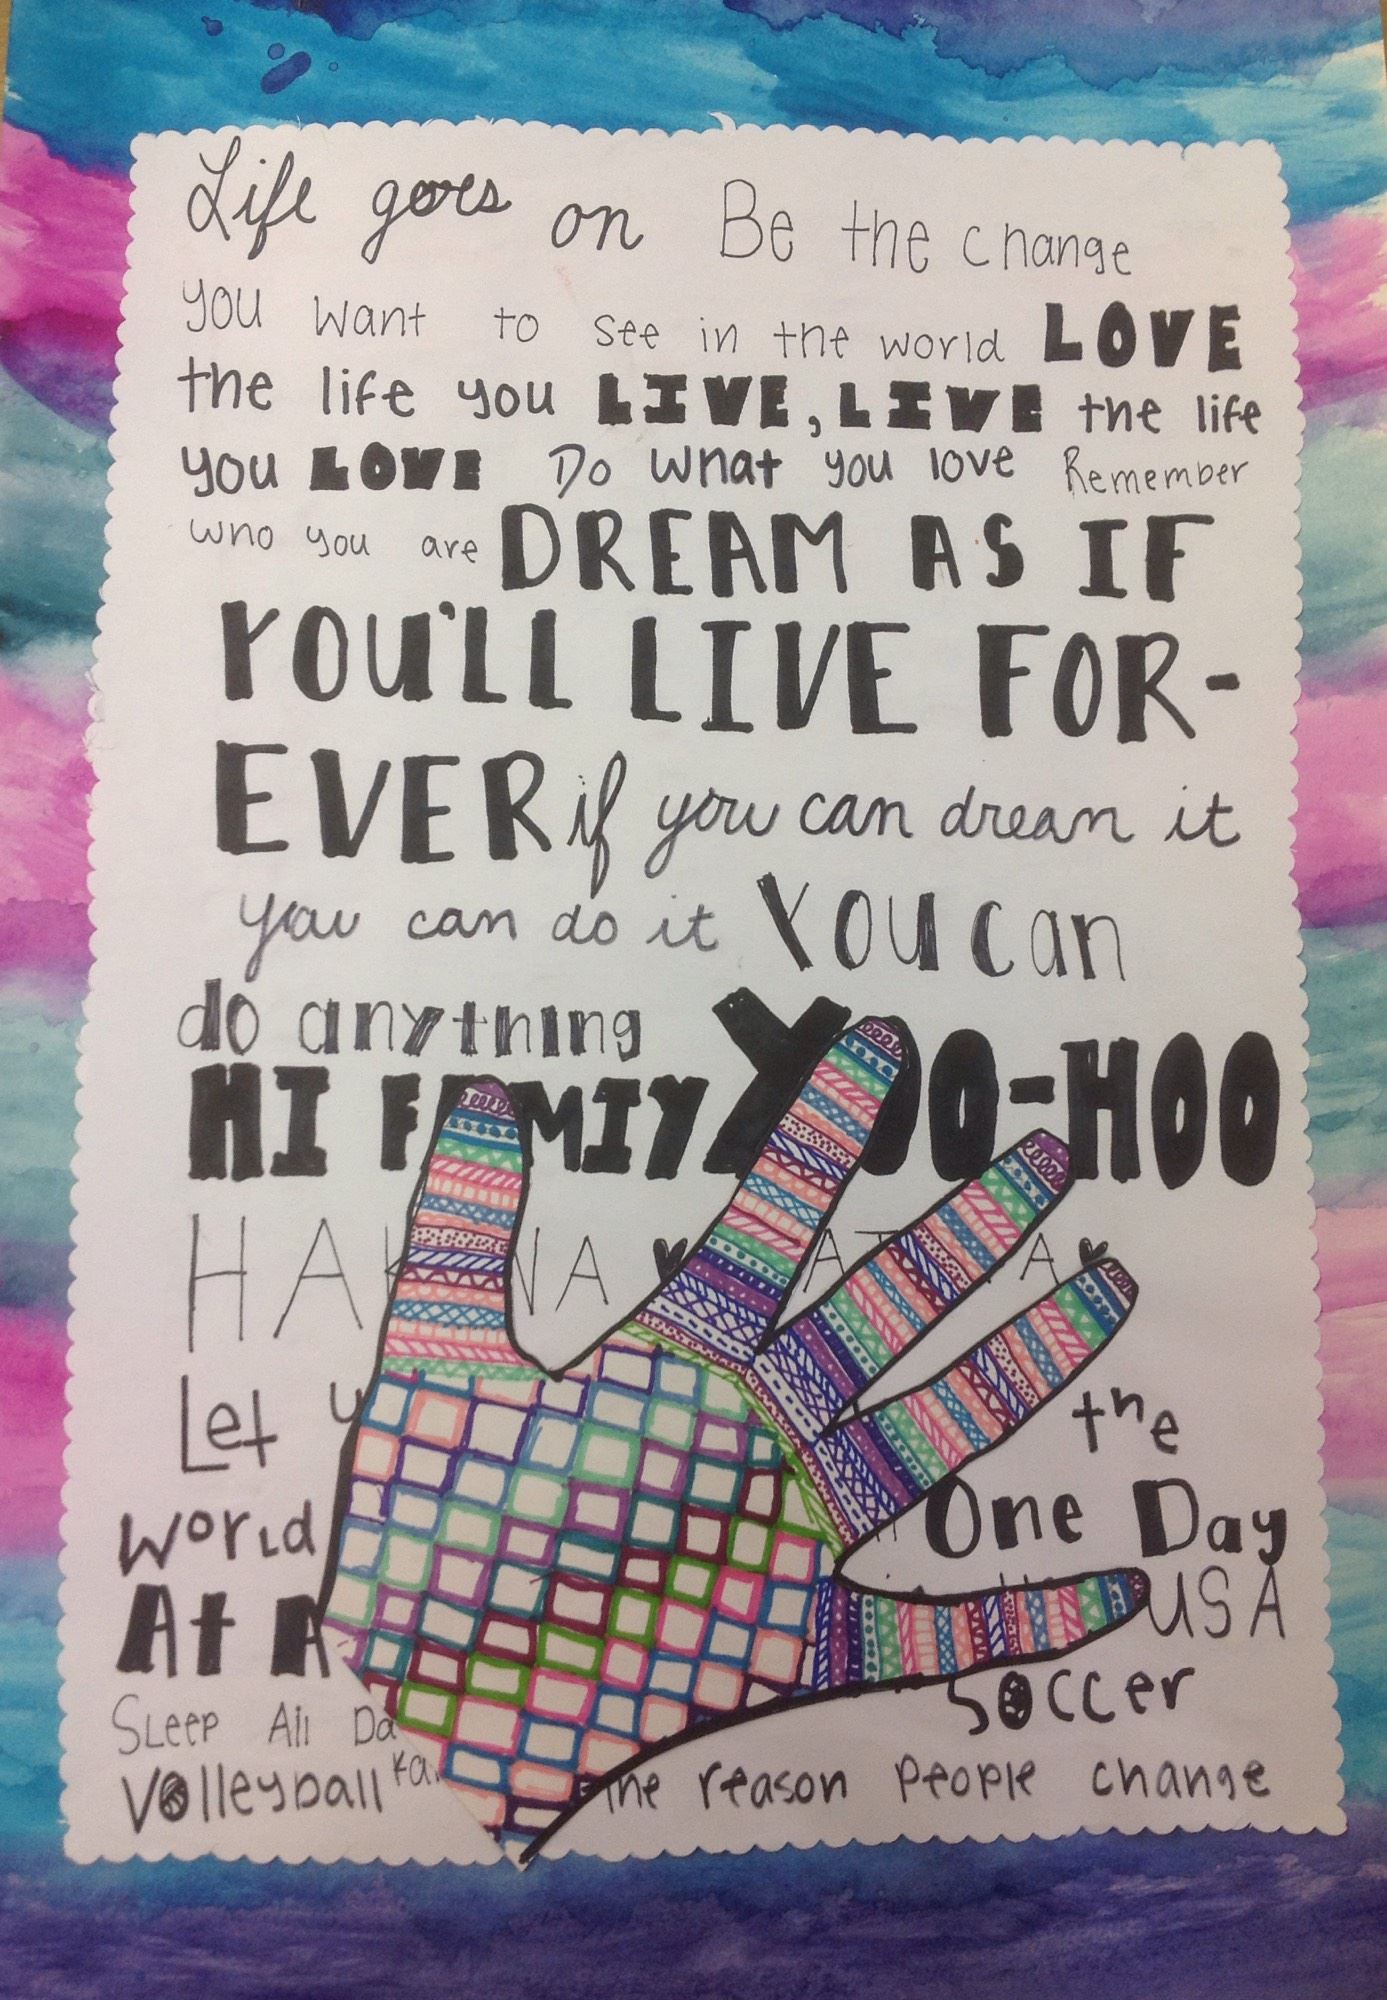 Life goes on Be the change
you want to see in the world LOVE
the life you LIVE, LIVE the life
you LOVE Do what you love Remember
who you are DREAM AS IF
YOU'LL LIVE FOR-
EVER if you can drean it
you can do it You can
do anything
HI FAMIY YOO-HOO
HAKUNA MATATA
Let the
world One Day
At A USA
Sleep All Soccer
Volleyball the reason people change